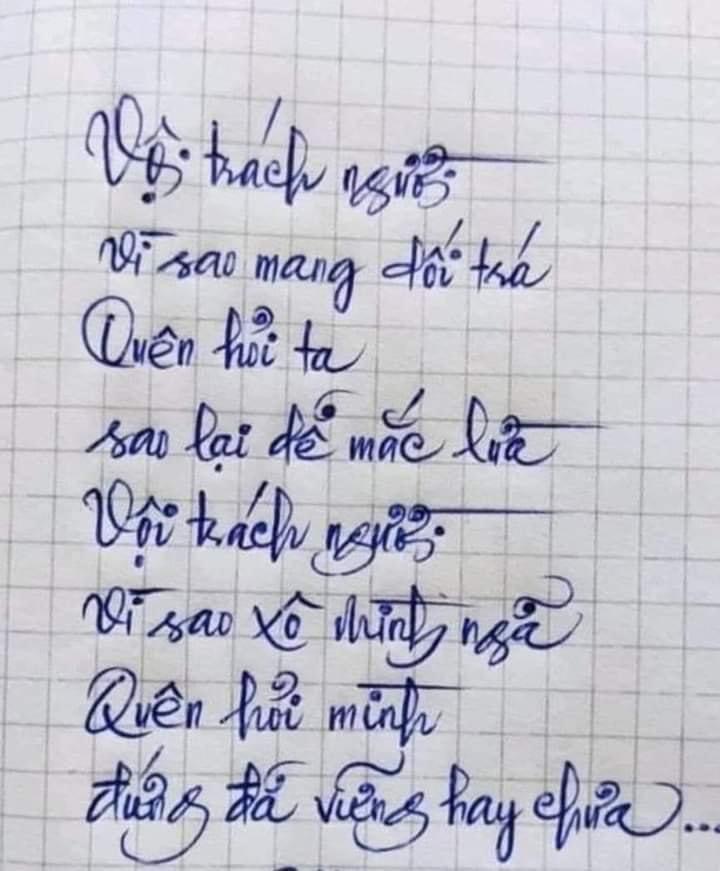 Vội trách người
vì sao mang dối trá
Quên hỏi ta
sao lại để mắc lừa
Vội trách người
vì sao xô mình ngã
Quên hỏi mình
đứng đã vững hay chưa...